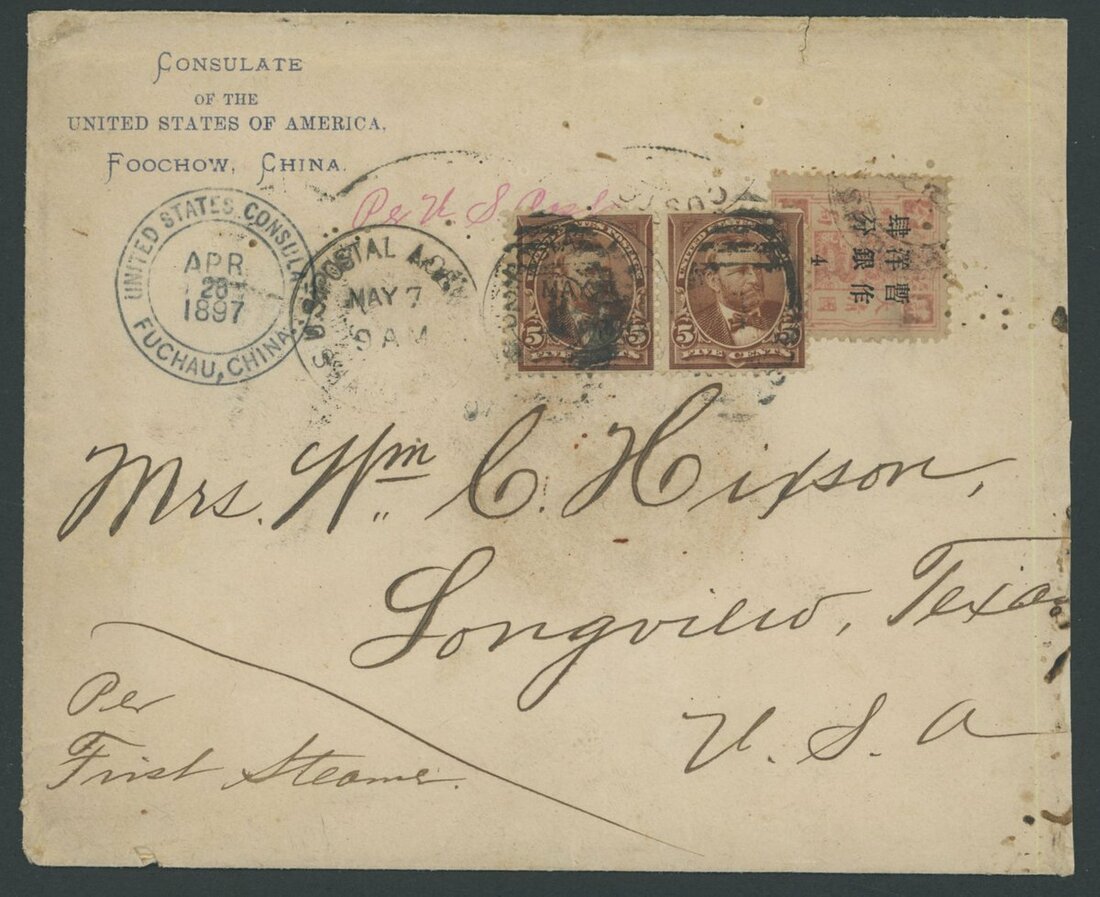 CONSULATE
OF THE
UNITED STATES OF AMERICA,
FOOCHOW, CHINA.
UNITED STATES CONSULA
APR
28
1897
FUCHAU, CHINA.
Per U S
U.S. POSTAL
MAY 7
9 AM
CUS
MAY
5 5
5
暫作
洋銀
肆分
4
Mrs. Wm C. Hixson,
Longview, Texas
U. S. A
Per
First Steamer.